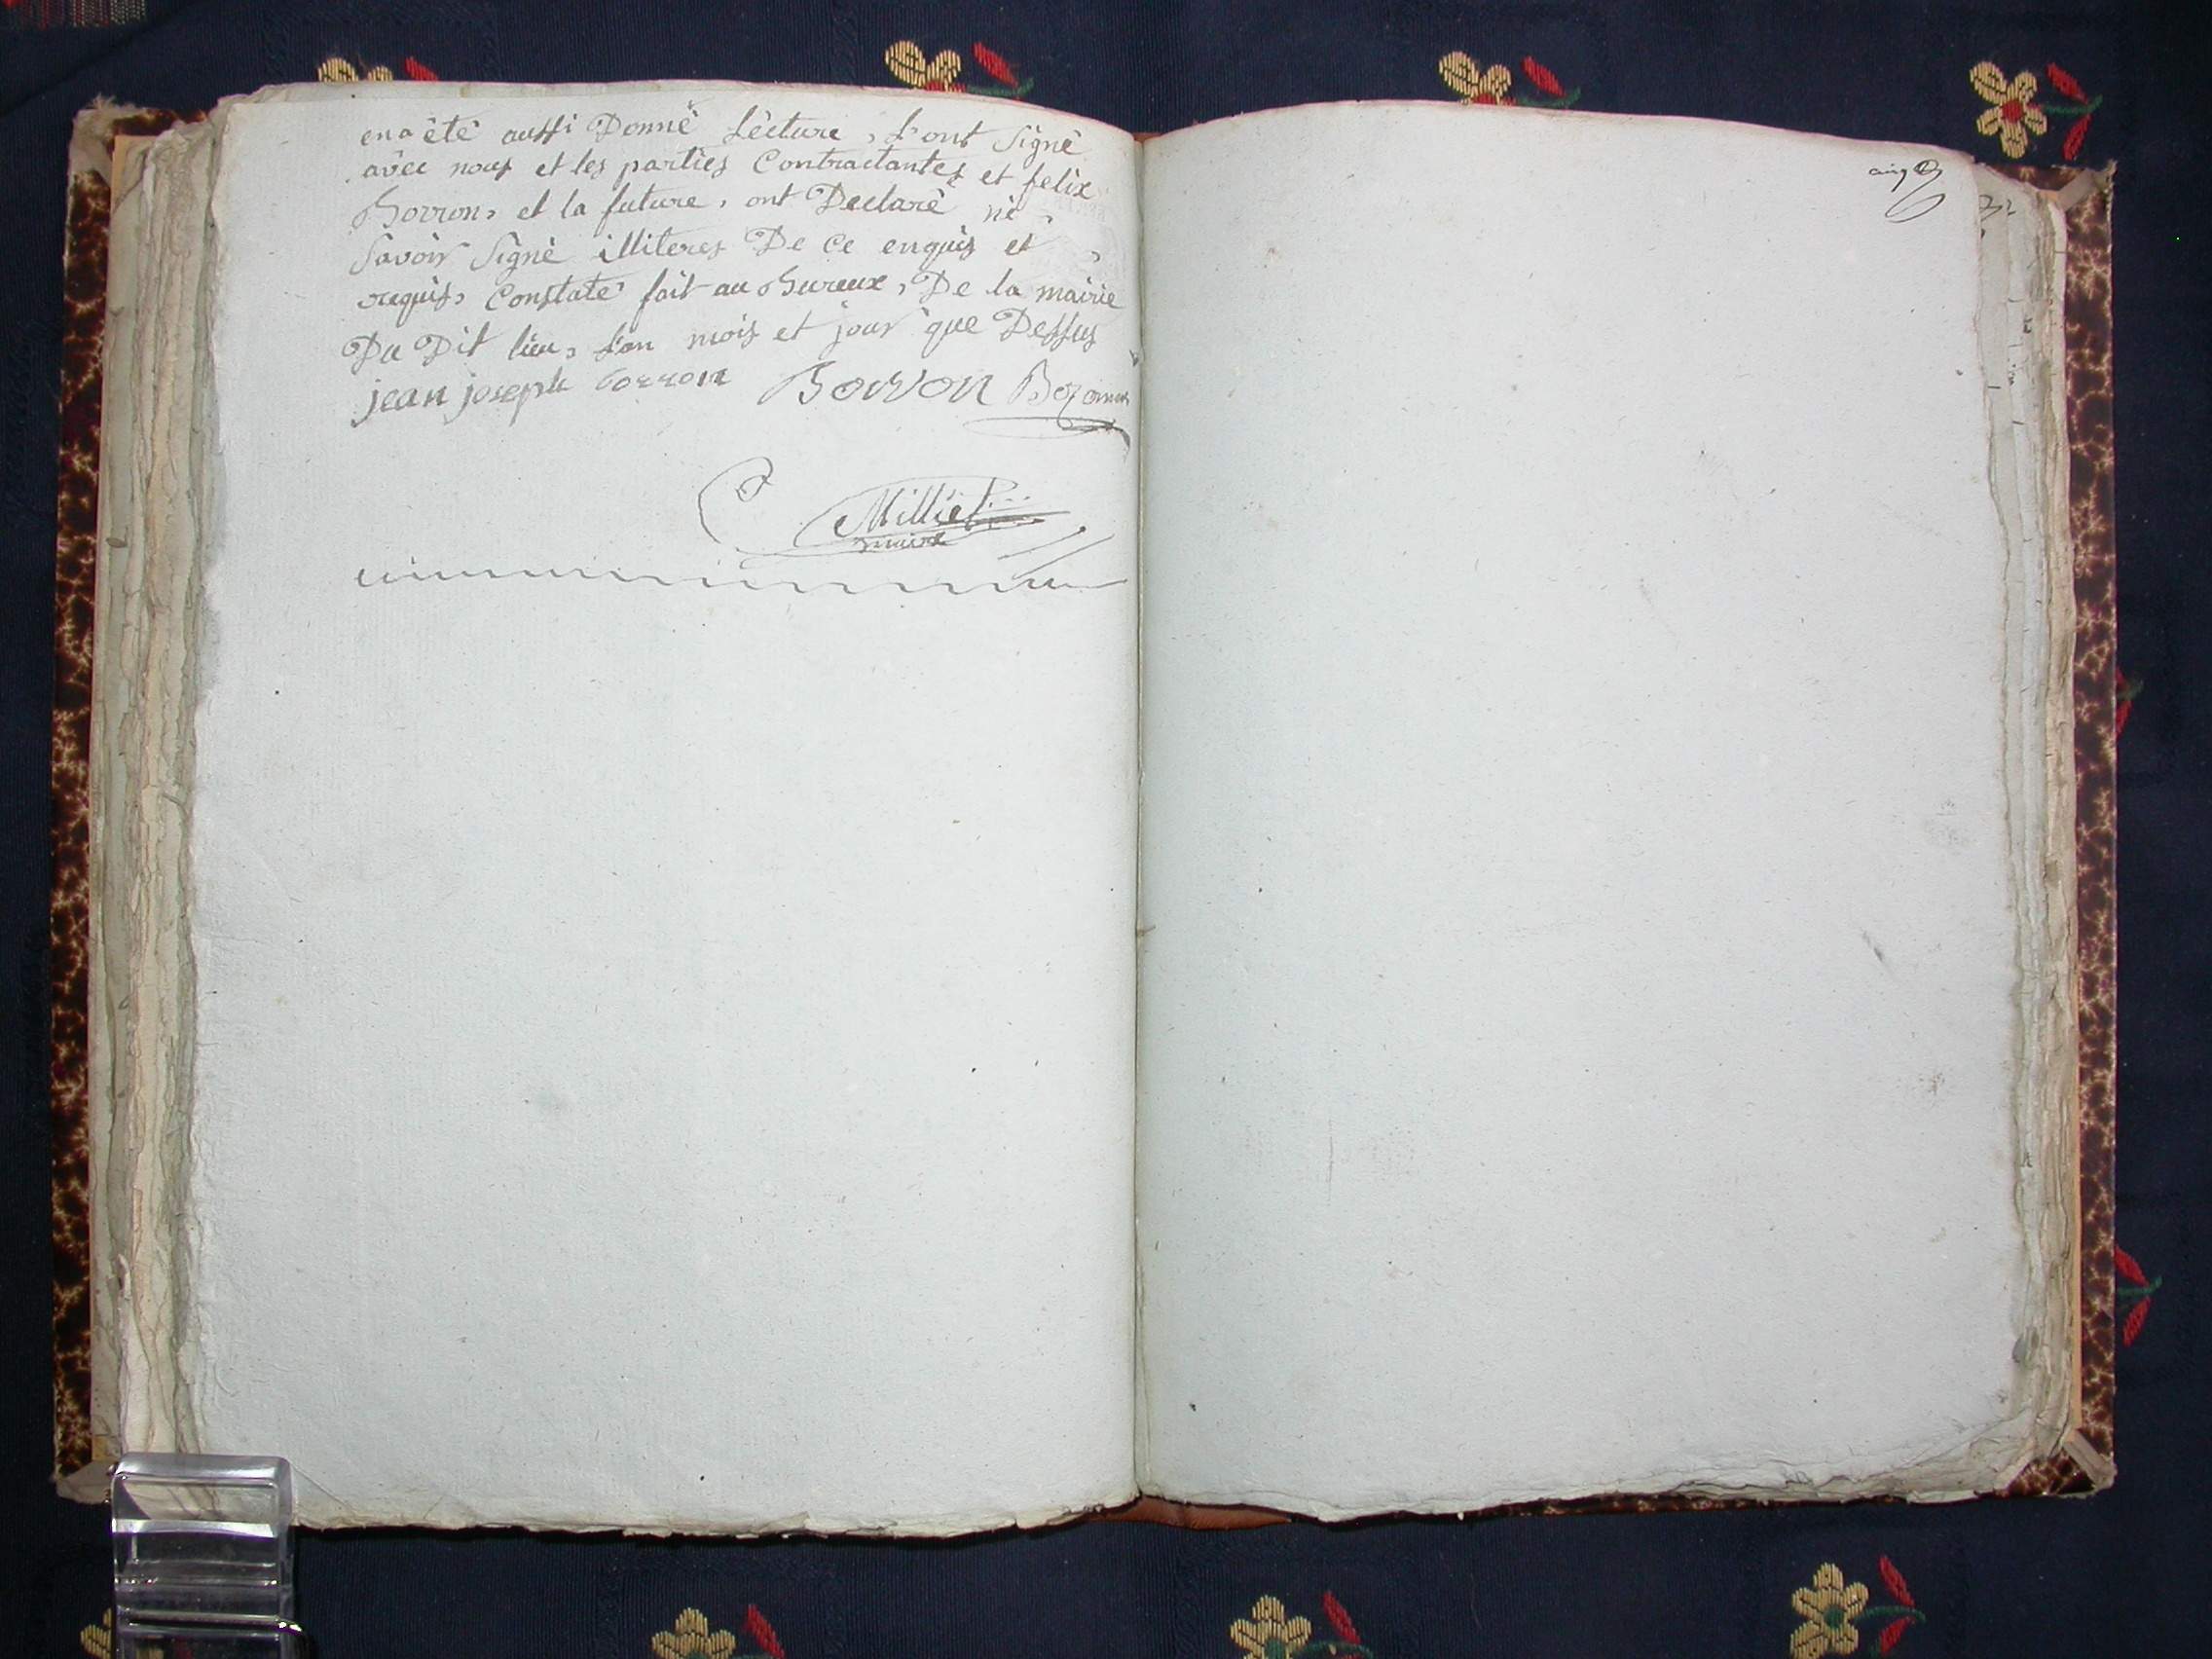 en a êtê aussi Donnê Lêcture, l'ont Signê
avêc nous et les parties Contractantes et felix
Borron, et la future, ont Declarê nê
Savoir Signê illiteres De ce enquis et
requis, Constatê fait au bureux, De la mairie
Du Dit lieu, l'an mois et jour que Dessus
jean joseph borron Borron
Milliet
maire